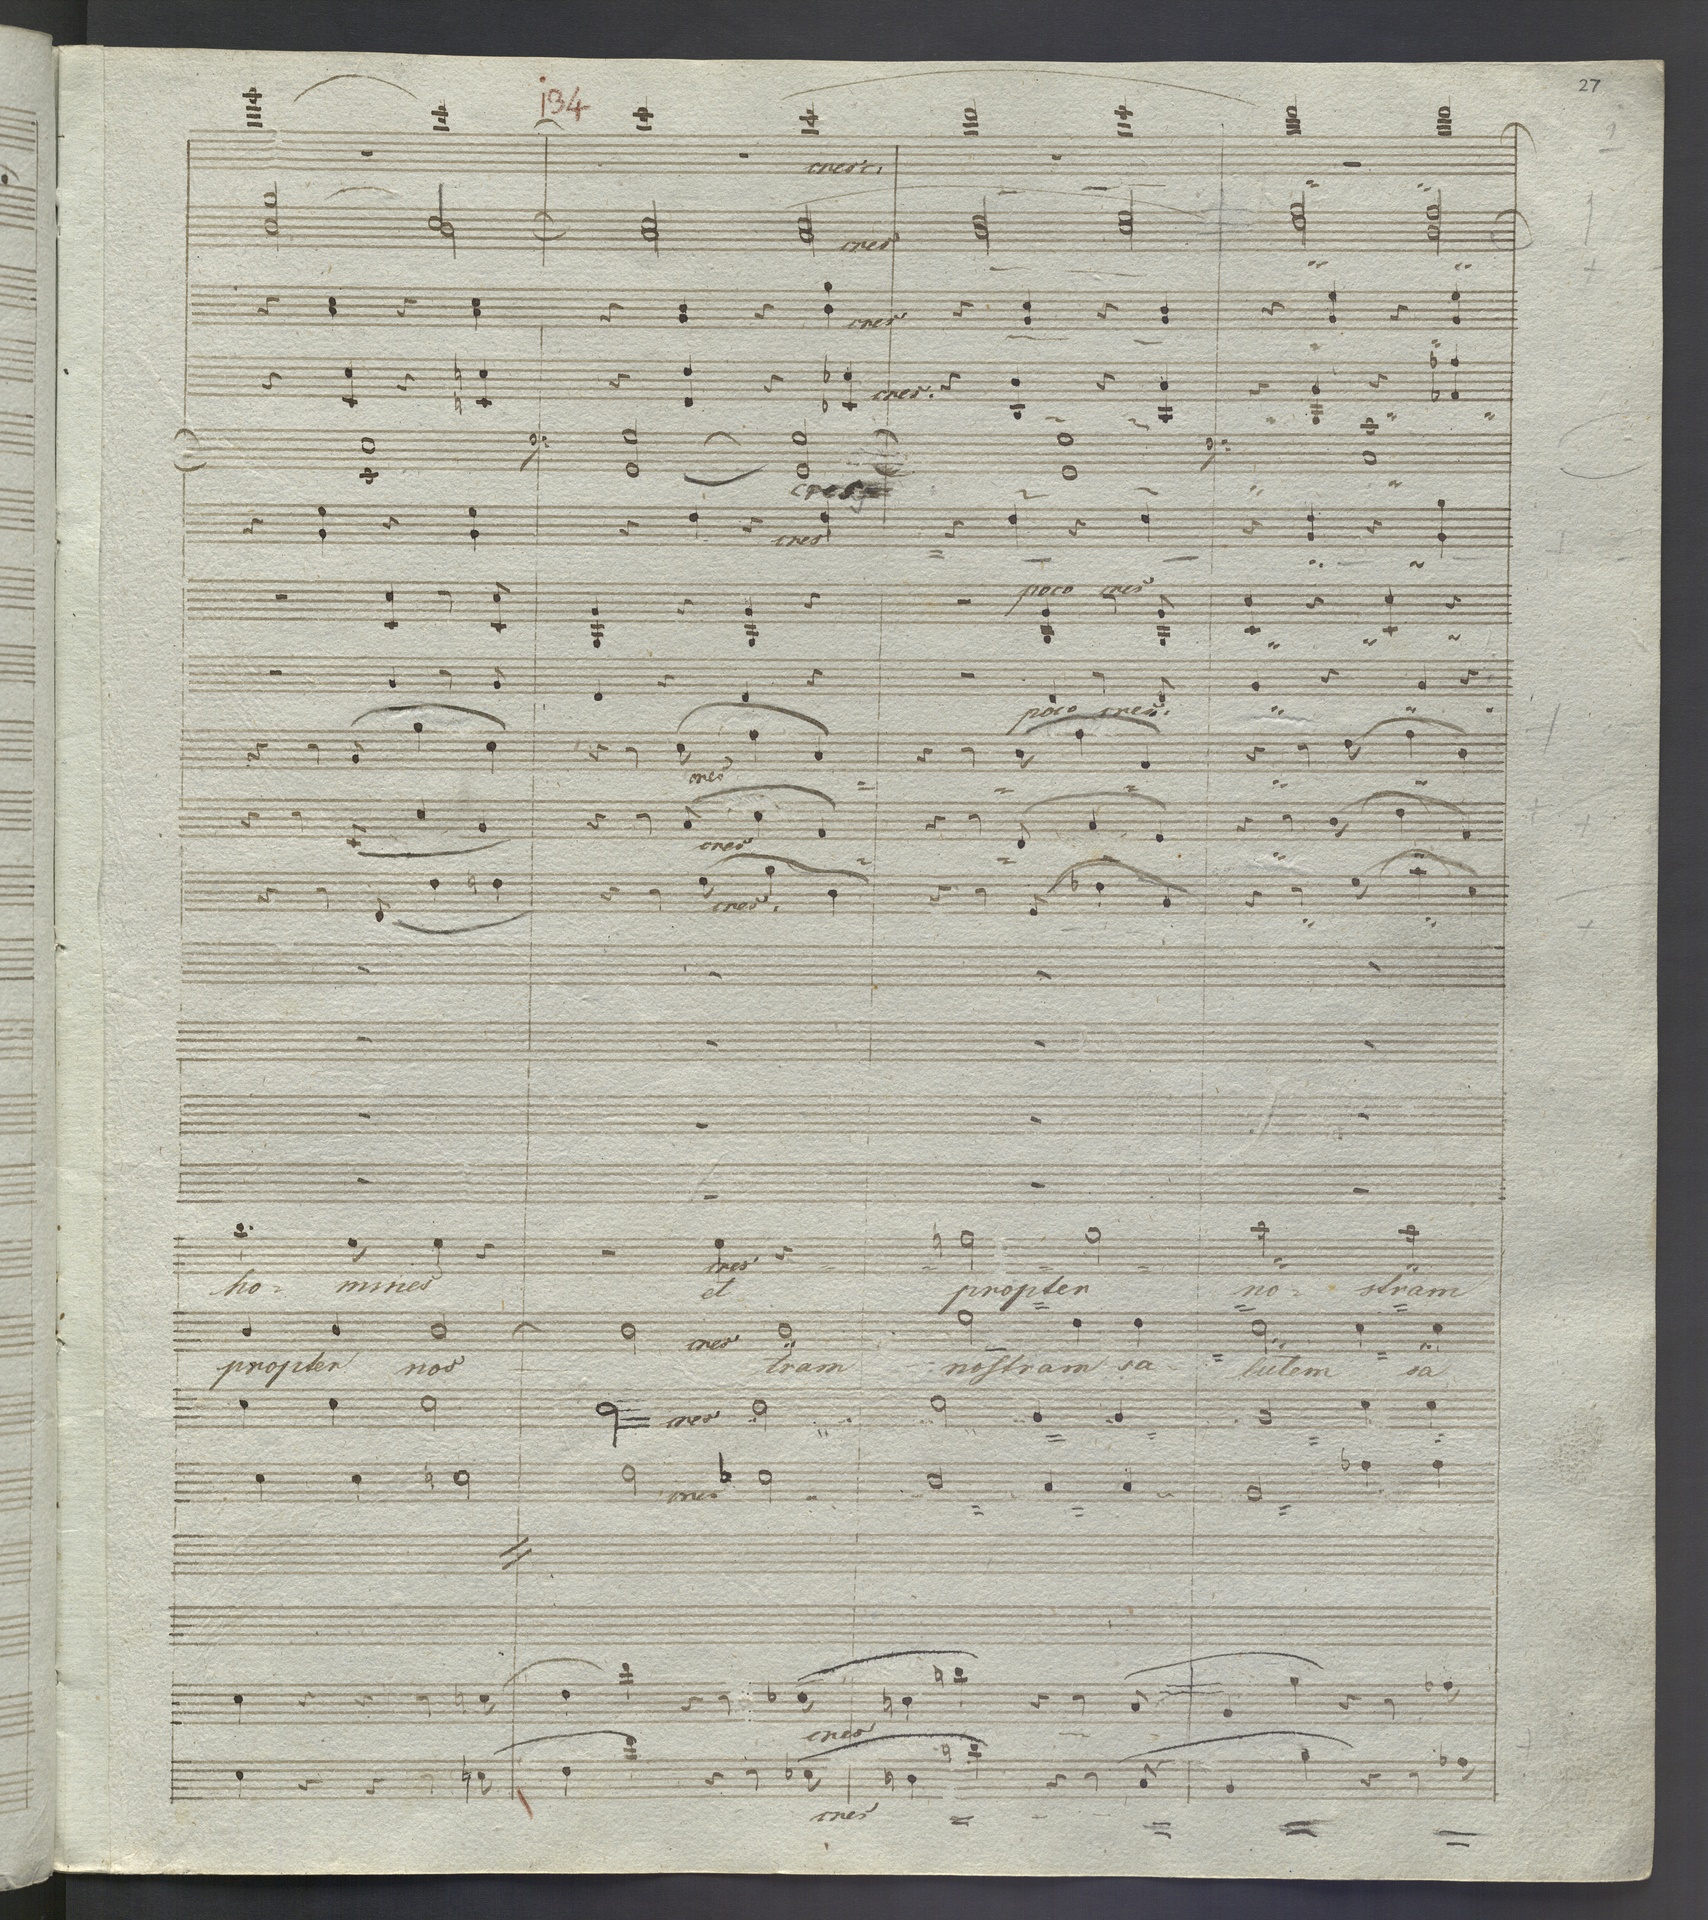 27
134
cresc.
cres
cres
cres.
cres
cres
poco cres
poco cres.
cres
cres
cres.
cres
ho- mines et propter no- stram
cres
propter nos tram nostram sa lutem sa
cres
cres
cres
cres